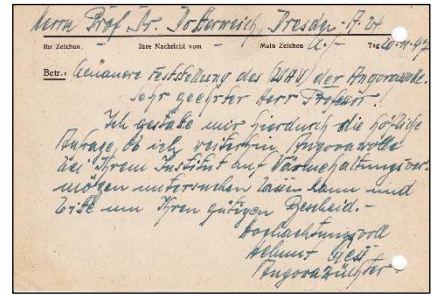 Herrn Prof. Dr. Dotterweich, Dresden-A. 24
Ihr Zeichen. Ihre Nachricht vom Mein Zeichen G./- Tag 20.11.47
Betr.: Genauere Feststellung des (WHV) der Angorawolle.
Sehr geehrter Herr Professor!
Ich gestatte mir hierdurch die höfliche
Anfrage, ob ich weiterhin Angorawolle
bei Ihrem Institut auf Wärmehaltungsver-
mögen untersuchen lassen kann und
bitte um Ihren gütigen Bescheid. -
Hochachtungsvoll
Helmut
Angorazüchter.